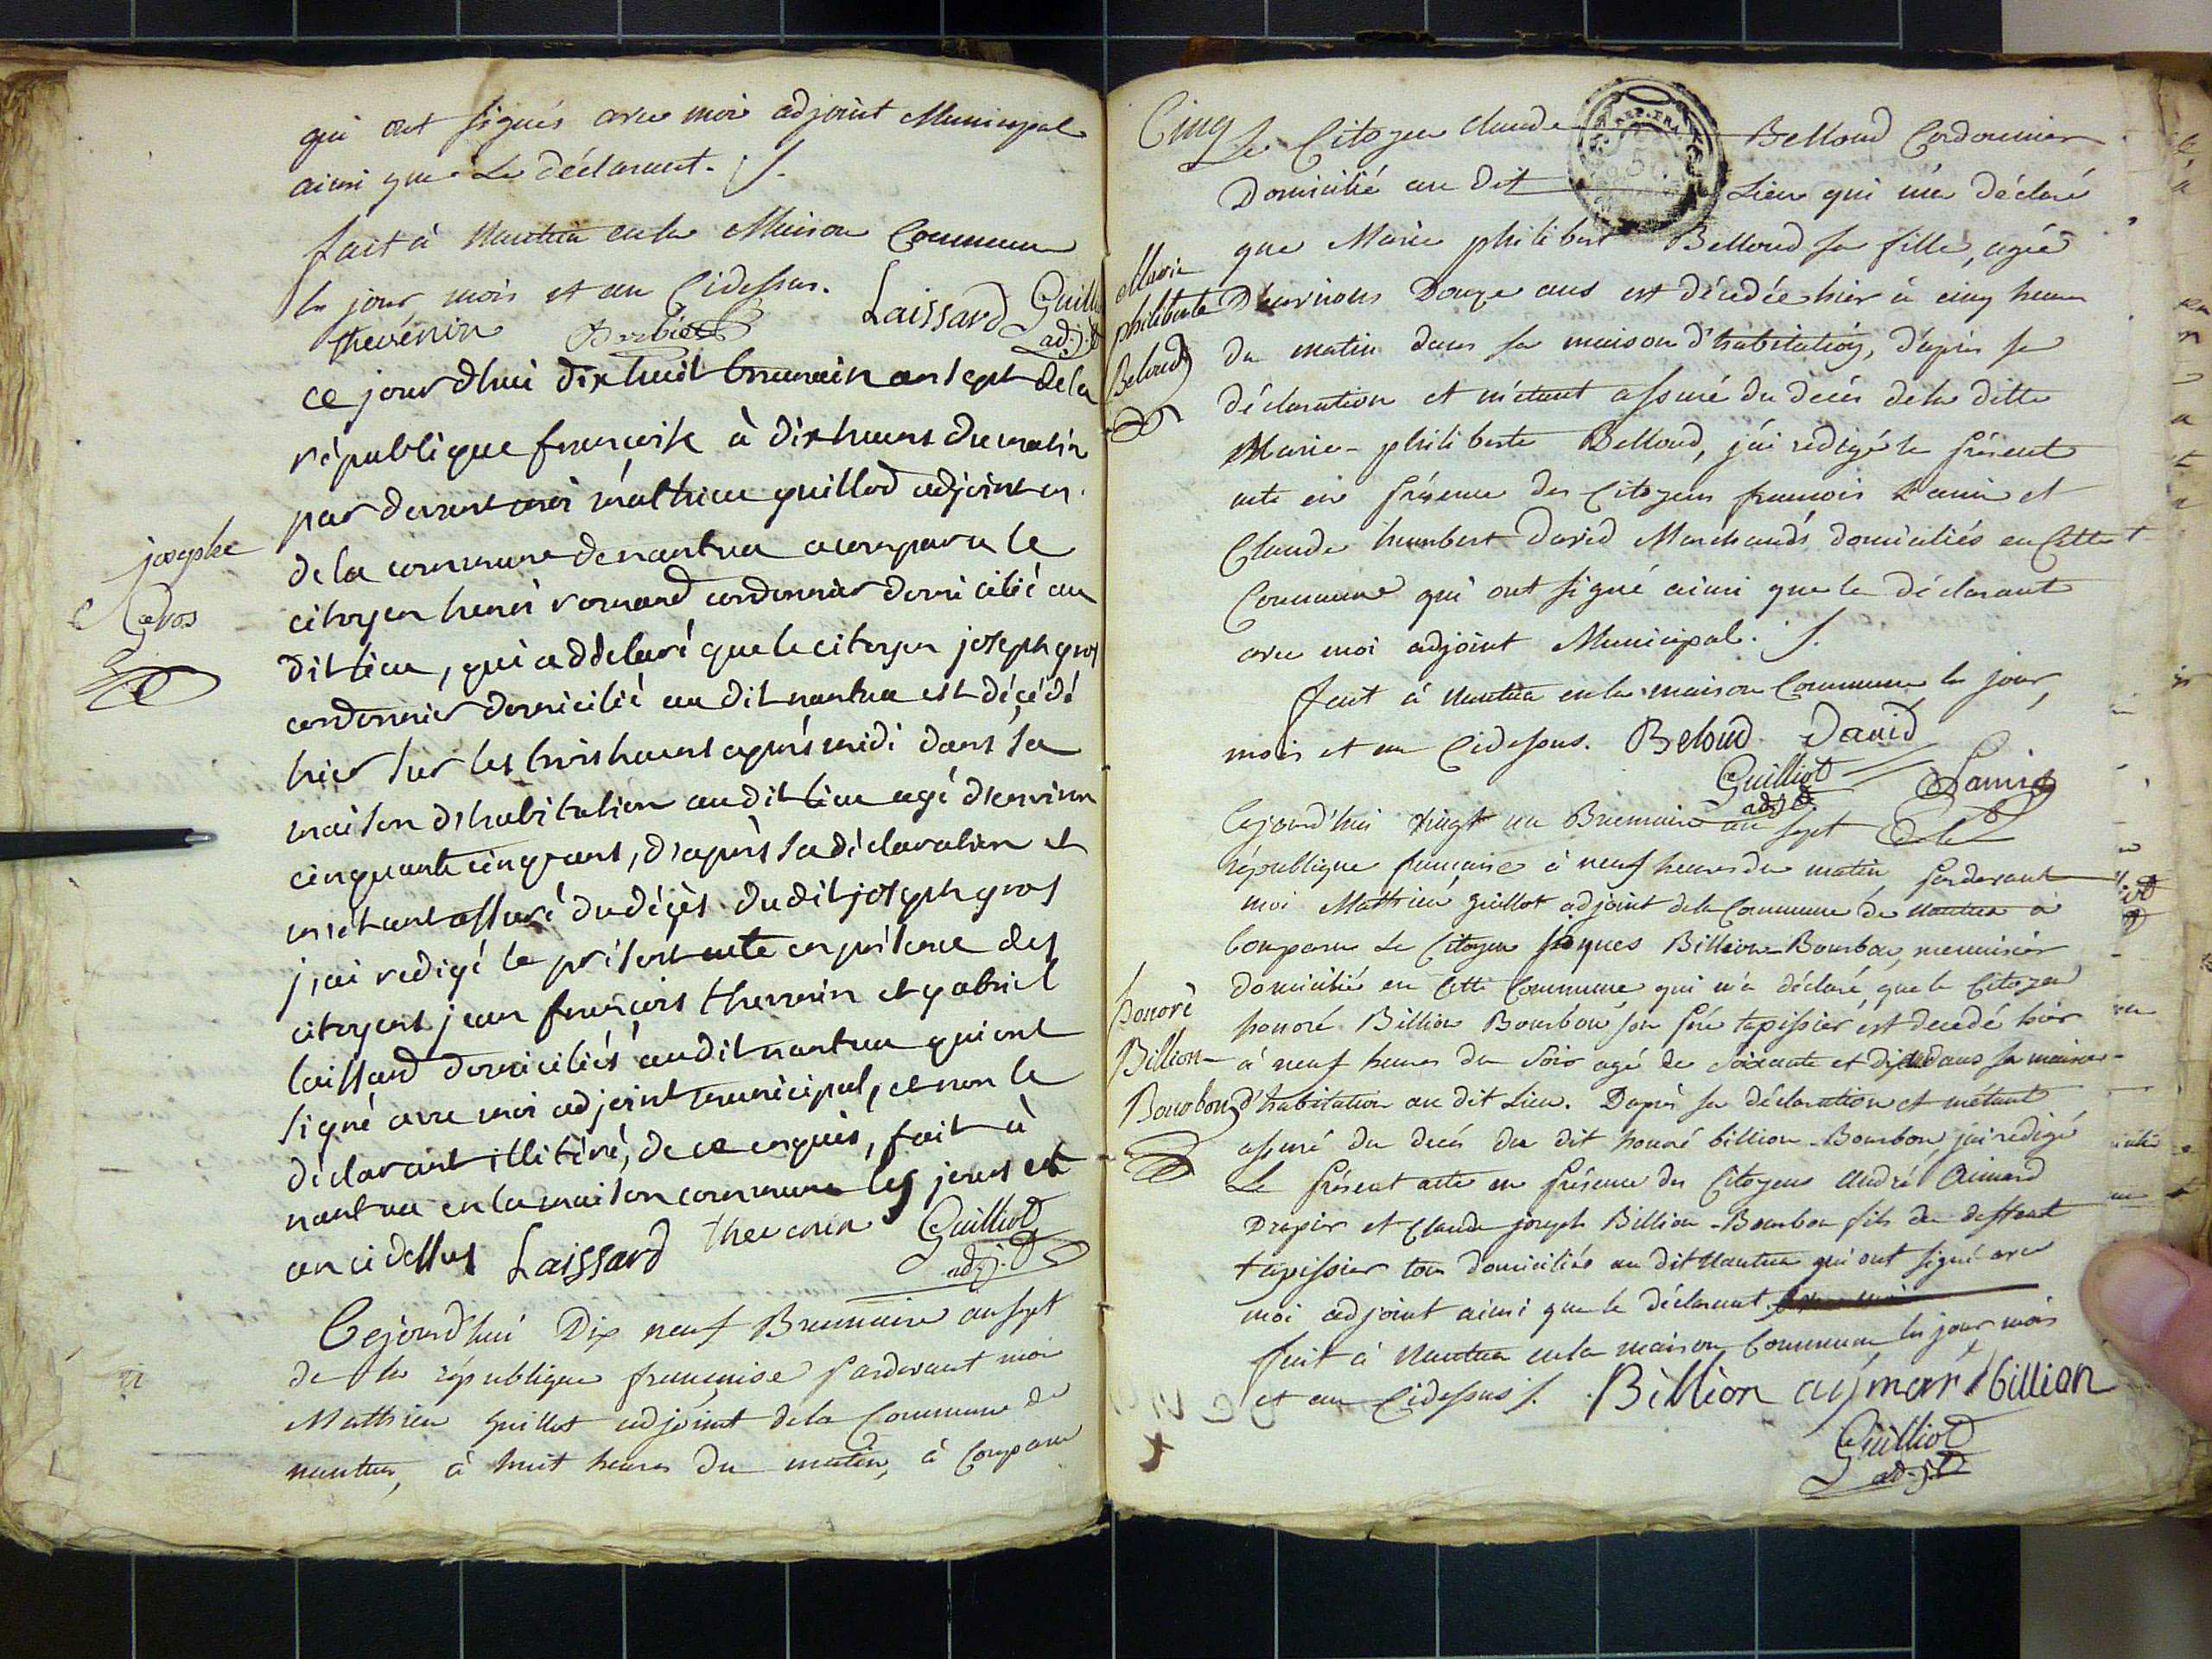 qui ont signés avec moi adjoint Municipal
ainsi que Le déclarant. /.
fait à Nantua en la Maison Commune
les jour mois et an Cidessus.
thevenin Barbier Laissard Guilliot
adj.t
josephe
Gros
ce jour dhui dix huit brumair an sept de la
république françoise à dix heurs du matin
par devant moi mathieu guillod adjoint
de la commune de nantua a comparu le
citoyen henri romand cordonnier domicilié au
dit lieu, qui a ddeclaré que le citoyen joseph gros
cordonnier domicilié au dit nantua est décédé
hier sur les trois heurs après midi dans sa
maison d'habitation au dit lieu agé d'environ
cinquante cinq ans, d'après sa déclaration et
m'étant assuré du décès du dit joseph gros
j'ai redigé le présent acte en présence des
citoyens jean françois thevenin et gabriel
laissard domiciliés au dit nantua qui ont
signé avec moi adjoint municipal, et non le
déclarant illitéré, de ce enquis, fait à
nantua en la maison commune les jours et
an ci dessus Laissard thevenin Guilliot
adj.t
Cejourd'hui Dix neuf Brumaire an sept
de la république française Pardevant moi
Mathieu Guillot adjoint de la Commune de
nantua, à huit heures du matin, à Comparu
Cinq
Le Citoyen claude Belloud Cordonnier
Domicilié au dit Lieu qui m'a déclaré
Marie
philiberte
Beloud
que Marie philibert Belloud sa fille, agée
D'environs Douze ans est décédée hier à cinq heures
du matin dans sa maison d'habitation, d'après sa
déclaration et m'étant assuré du décès de la ditte
Marie-philiberte Belloud, j'ai redigé le présent
acte en présence des Citoyens francois Lami et
Claude humbert David Marchands domiciliés en Cette
Commune qui ont signé ainsi que le déclarant
avec moi adjoint Municipal. /.
fait à Nantua en la maison Commune les jour,
mois et an Cidessus. Beloud David
Guilliot Lami
adj.t
Cejourd'hui vingt un Brumaire an sept de la
république française à neuf heures du matin pardevant
moi Mathieu Guillot adjoint de la Commune de Nantua a
Comparu Le Citoyen jaques Billion-Bourbon, menuisier
domicilié en Cette Commune qui m'a déclaré, que le Citoyen
honoré
Billion-
Bourbon
honoré Billion Bourbon son père tapissier est decedé hier
à neuf heures du Soir agé de soixante et dix dans sa maison
d'habitation au dit Lieu. Daprès sa déclaration et métant
assuré du decés du dit honoré billion-Bourbon, j'ai redigé
Le présent acte en présence des Citoyens André Aimard
Drapier et Claude joseph Billion-Bourbon fils du deffunt
tapissier tous domiciliés au dit Nantua qui ont signé avec
moi adjoint ainsi que le déclarant
fait à Nantua en la maison Commune les jour mois
et an Cidessus /. Billion aymard billion
Guilliot
adj.t